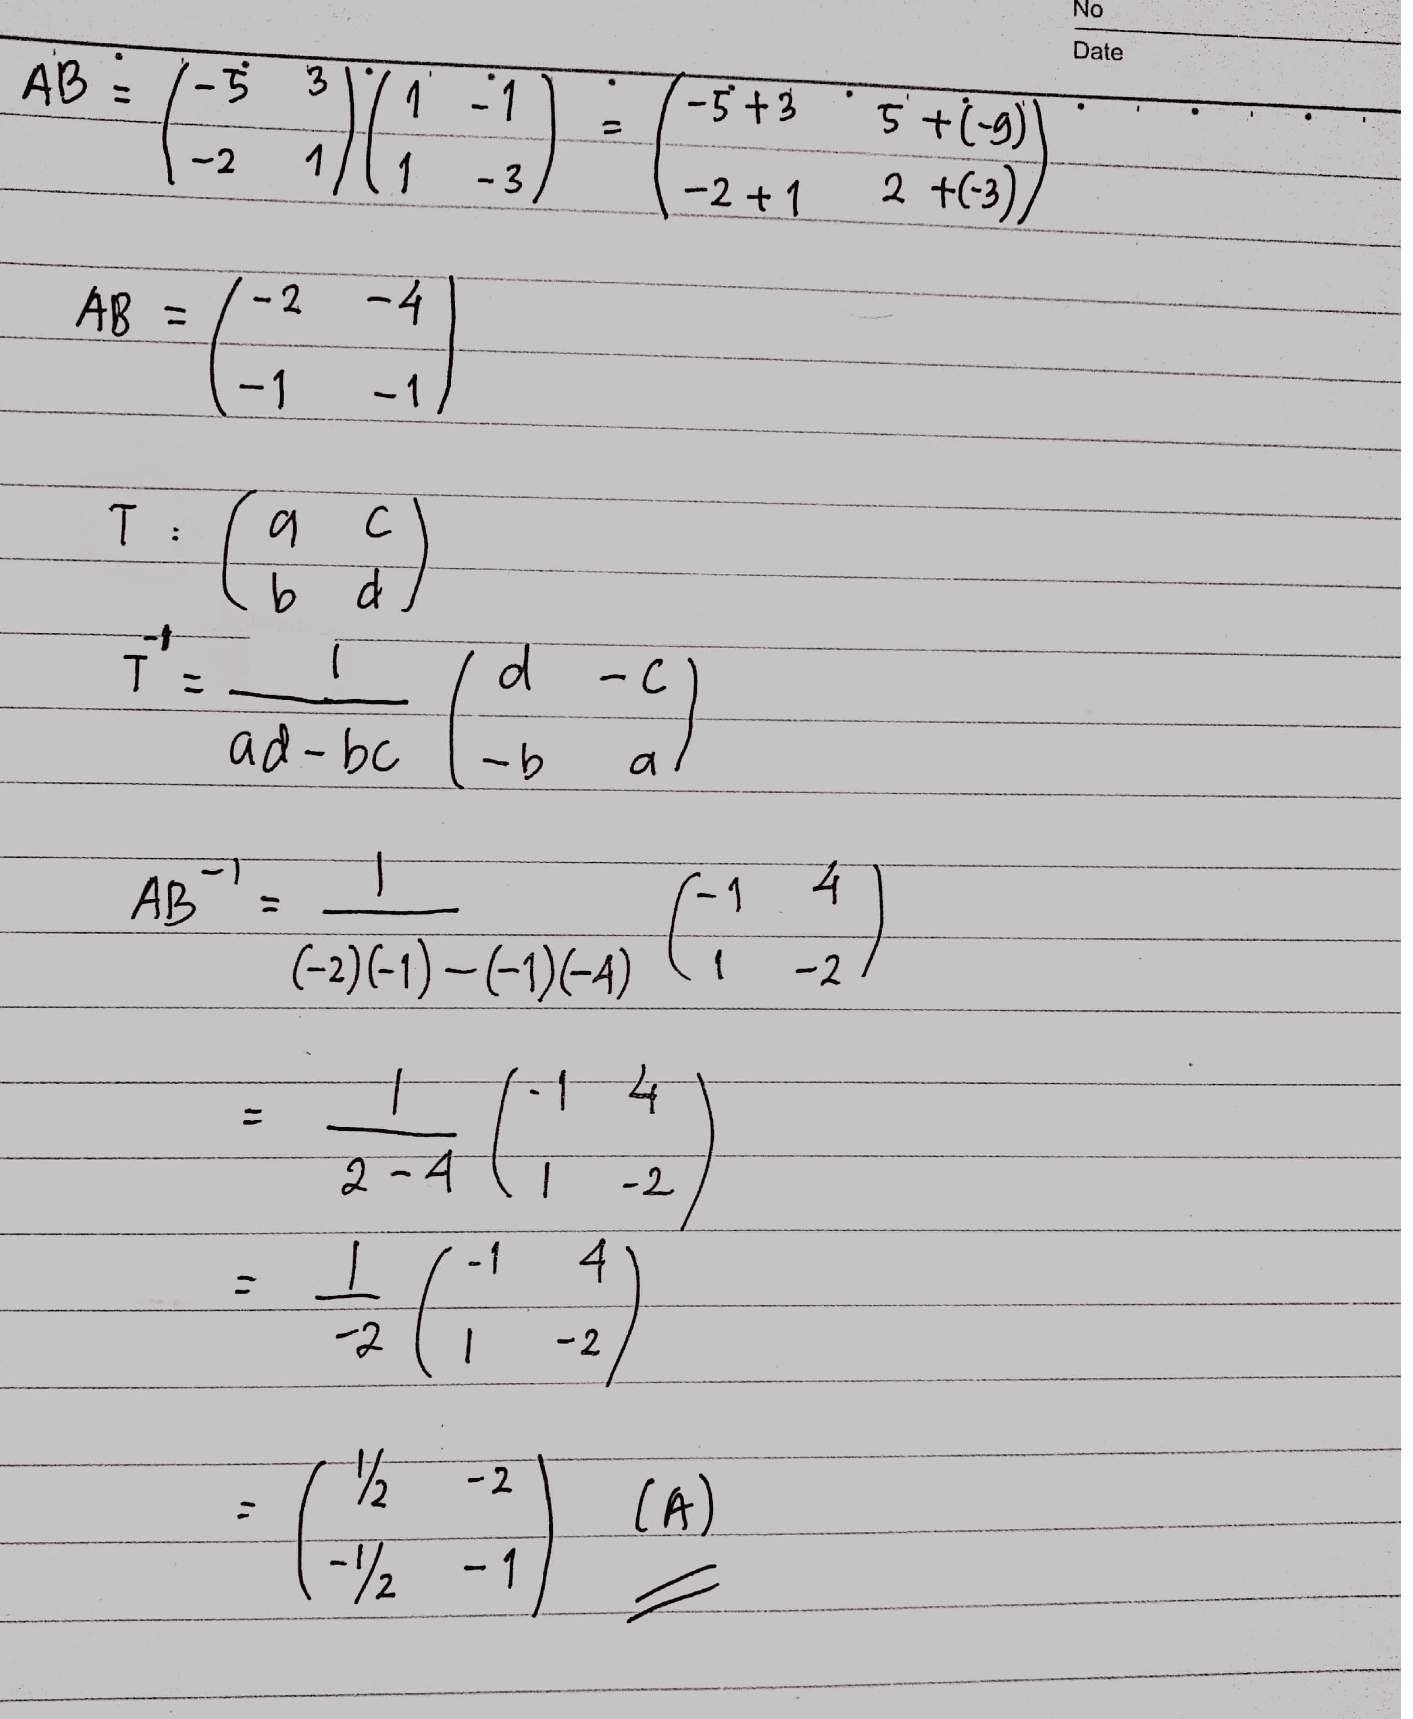 No
Date
AB = (-5 3 -2 1)(1 -1 1 -3) = (-5+3 5+(-9) -2+1 2+(-3))
AB = (-2 -4 -1 -1)
T : (a c b d)
T⁻¹ = 1/(ad-bc) (d -c -b a)
AB⁻¹ = 1/((-2)(-1)-(-1)(-4)) (-1 4 1 -2)
= 1/(2-4) (-1 4 1 -2)
= 1/-2 (-1 4 1 -2)
= (1/2 -2 -1/2 -1) (A)